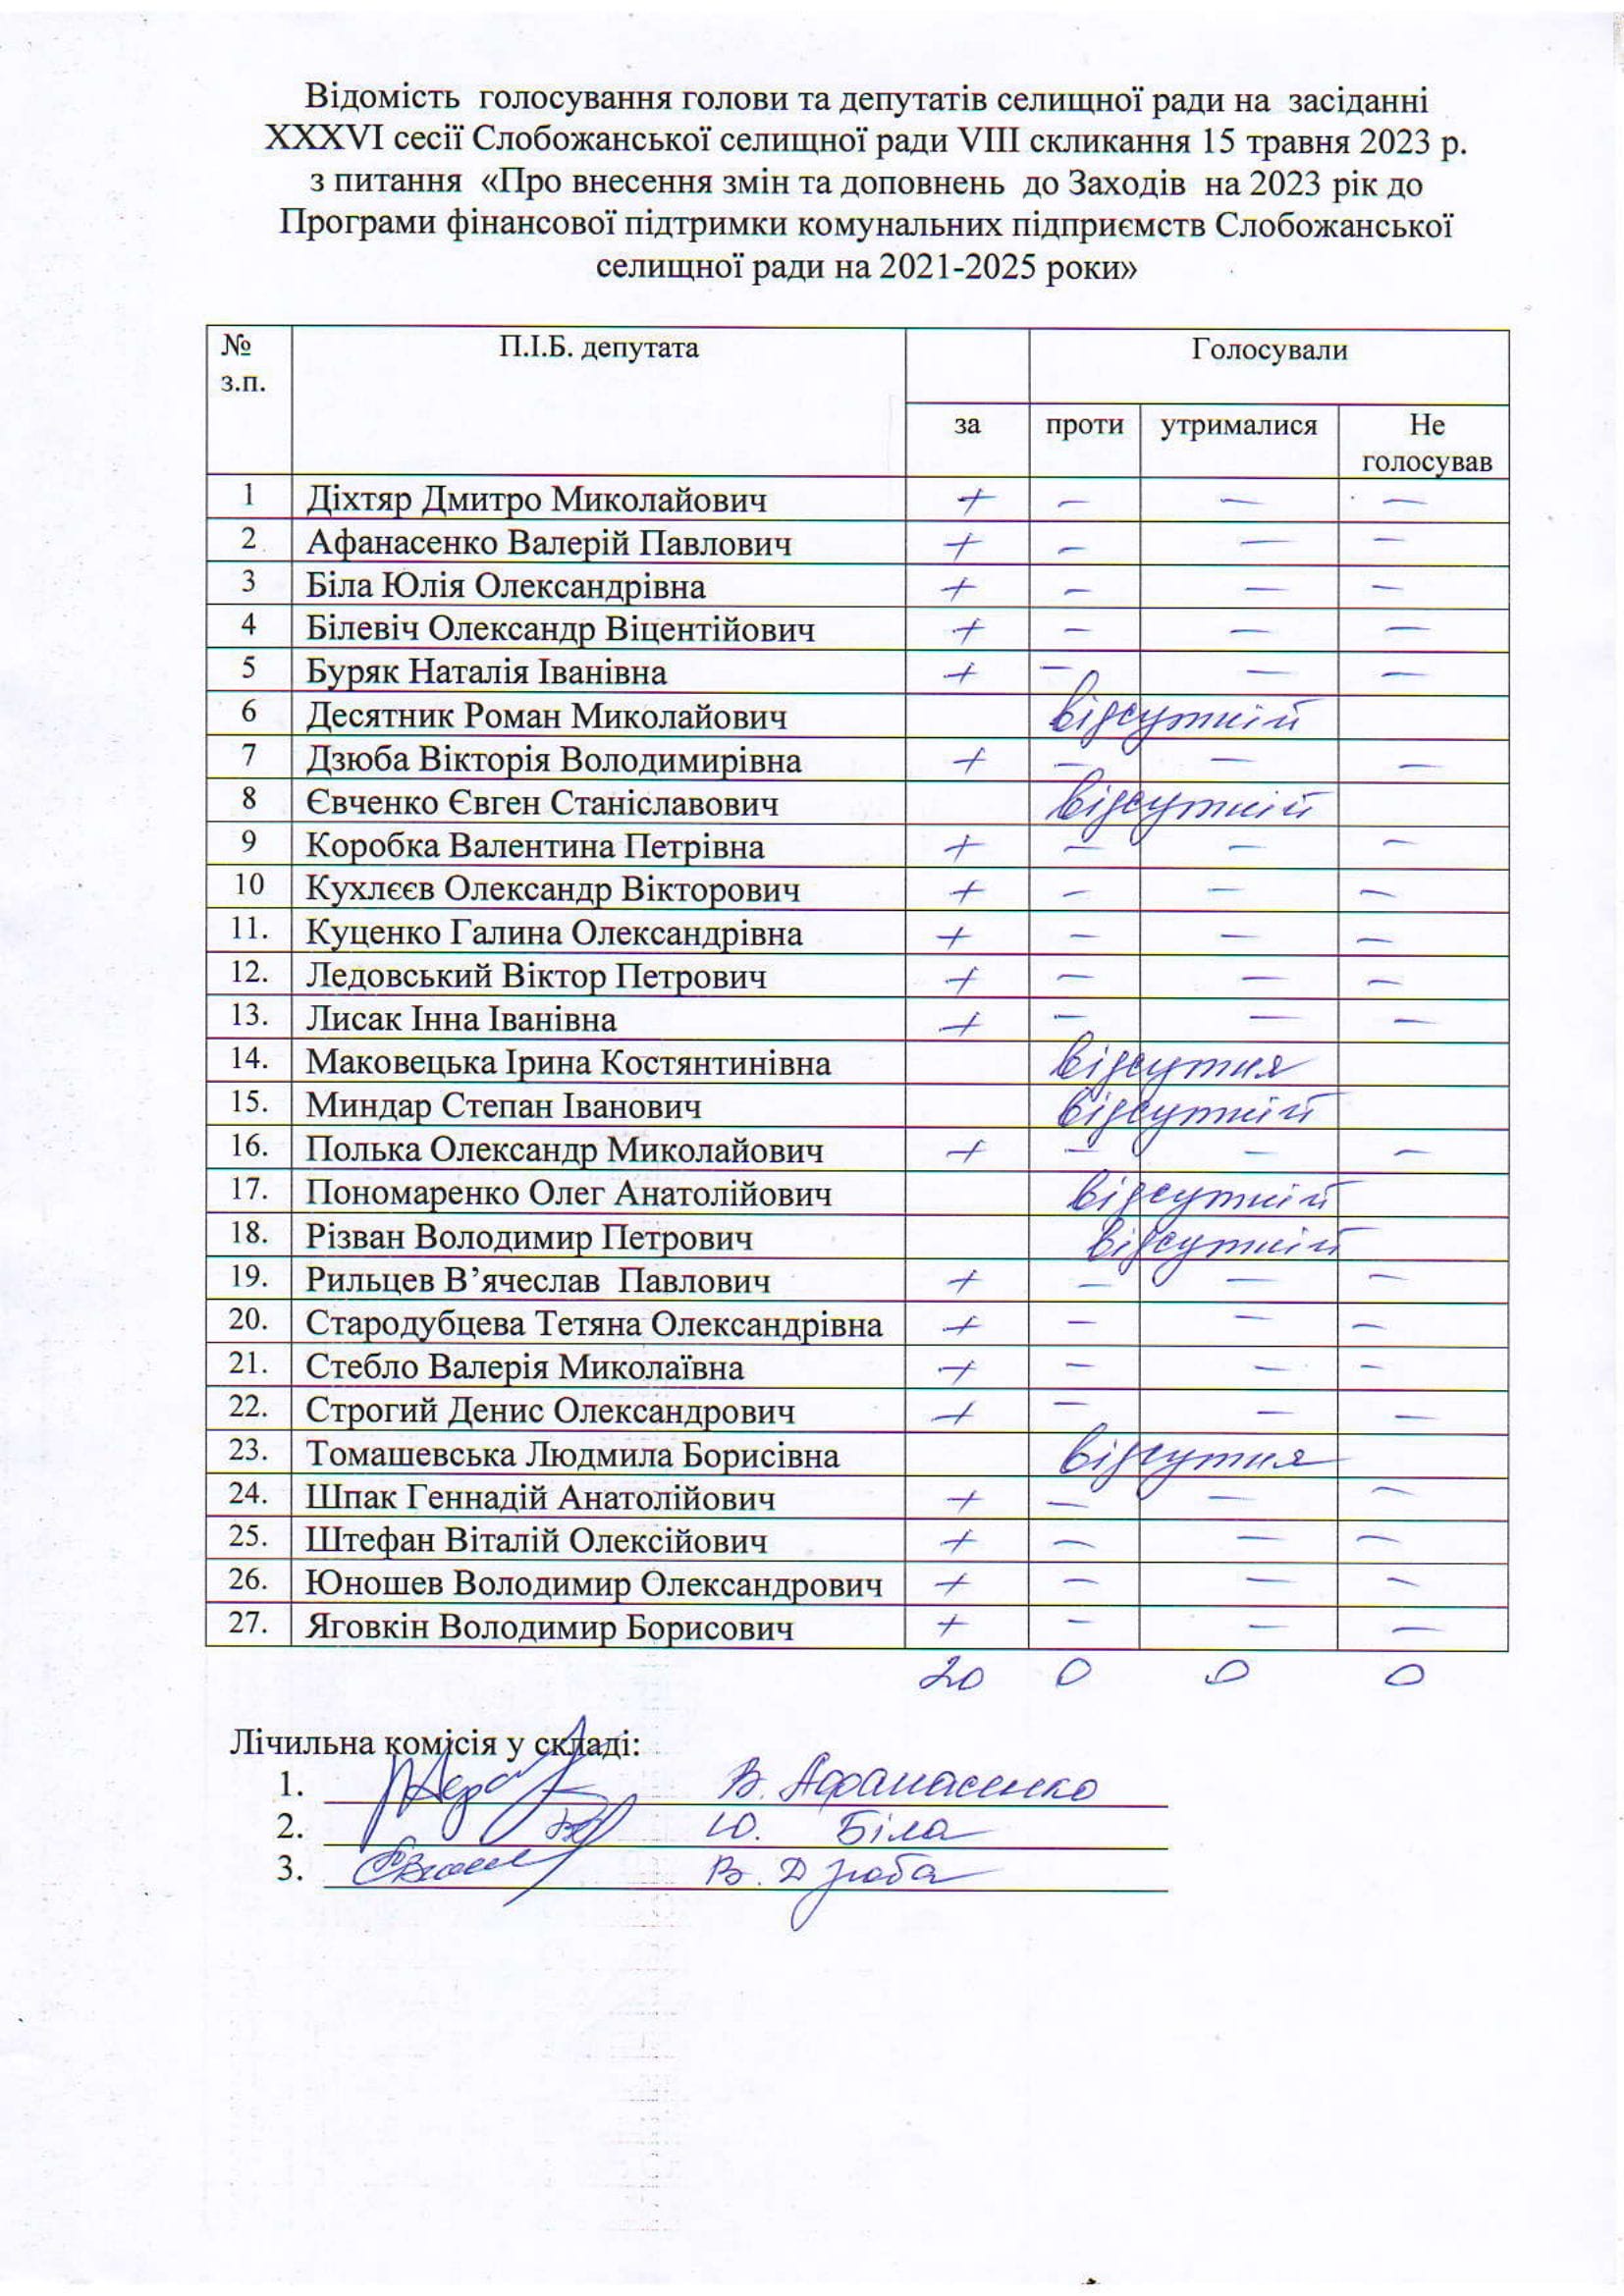 Відомість голосування голови та депутатів селищної ради на засіданні
XXXVI сесії Слобожанської селищної ради VIII скликання 15 травня 2023 р.
з питання «Про внесення змін та доповнень до Заходів на 2023 рік до
Програми фінансової підтримки комунальних підприємств Слобожанської
селищної ради на 2021-2025 роки»
№ з.п. П.І.Б. депутата Голосували
за проти утрималися Не голосував
1 Діхтяр Дмитро Миколайович + – – –
2 Афанасенко Валерій Павлович + – – –
3 Біла Юлія Олександрівна + – – –
4 Білевіч Олександр Віцентійович + – – –
5 Буряк Наталія Іванівна + – – –
6 Десятник Роман Миколайович відсутній
7 Дзюба Вікторія Володимирівна + – – –
8 Євченко Євген Станіславович відсутній
9 Коробка Валентина Петрівна + – – –
10 Кухлєєв Олександр Вікторович + – – –
11. Куценко Галина Олександрівна + – – –
12. Ледовський Віктор Петрович + – – –
13. Лисак Інна Іванівна + – – –
14. Маковецька Ірина Костянтинівна відсутня
15. Миндар Степан Іванович відсутній
16. Полька Олександр Миколайович + – – –
17. Пономаренко Олег Анатолійович відсутній
18. Різван Володимир Петрович відсутній
19. Рильцев В’ячеслав Павлович + – – –
20. Стародубцева Тетяна Олександрівна + – – –
21. Стебло Валерія Миколаївна + – – –
22. Строгий Денис Олександрович + – – –
23. Томашевська Людмила Борисівна відсутня
24. Шпак Геннадій Анатолійович + – – –
25. Штефан Віталій Олексійович + – – –
26. Юношев Володимир Олександрович + – – –
27. Яговкін Володимир Борисович + – – –
20 0 0 0
Лічильна комісія у складі:
1. В. Афанасенко
2. Ю. Біла
3. В. Дзюба